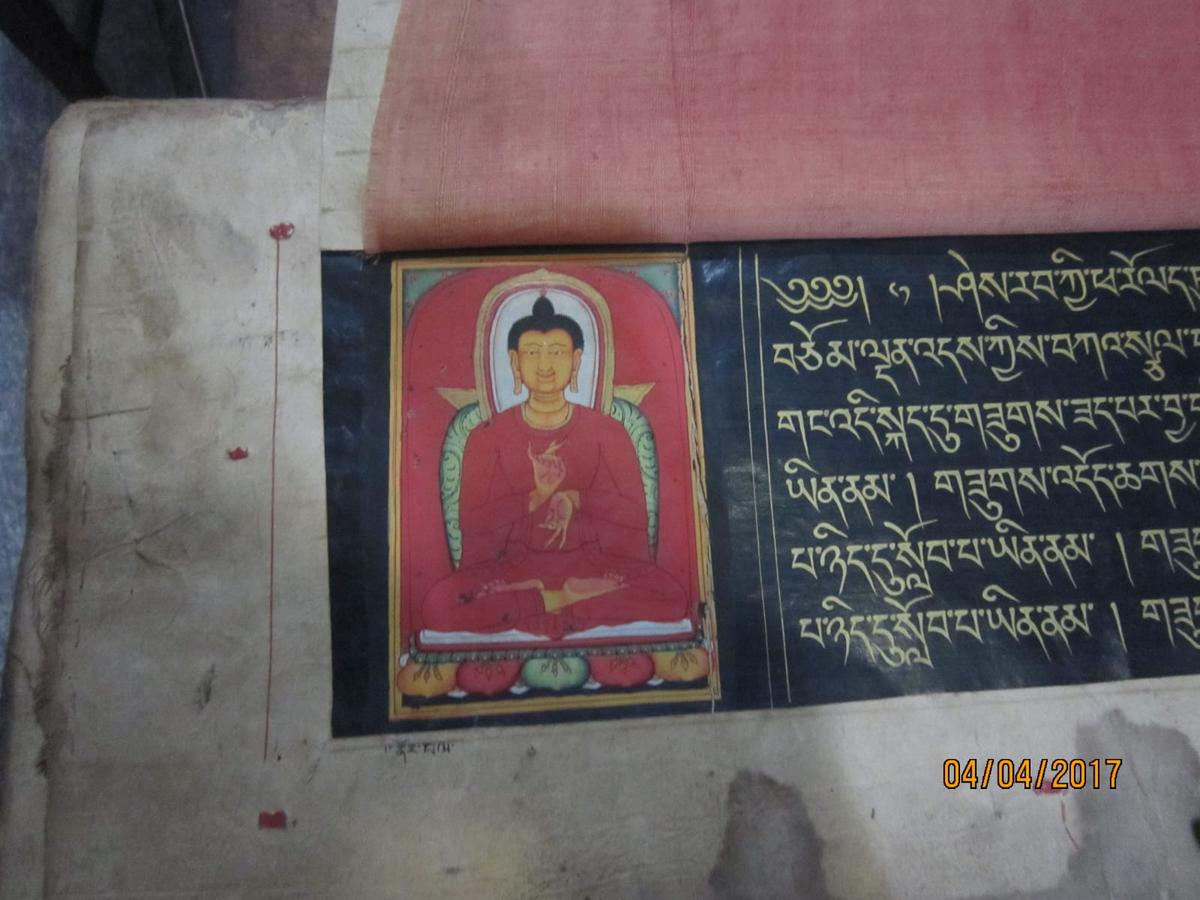 ༄༅༅། ༡ །ཤེས་རབ་ཀྱི་ཕ་རོལ་ད
བཅོམ་ལྡན་འདས་ཀྱིས་བཀའ་སྩལ་པ
གང་འདི་སྐད་དུ་གཟུགས་ཟད་པར་བྱ
ཡིན་ནམ་ །  གཟུགས་འདོད་ཆགས་
པ་ཉིད་དུ་སློབ་པ་ཡིན་ནམ་ །  གཟུ
པ་ཉིད་དུ་སློབ་པ་ཡིན་ནམ་ །  གཟུ
04/04/2017